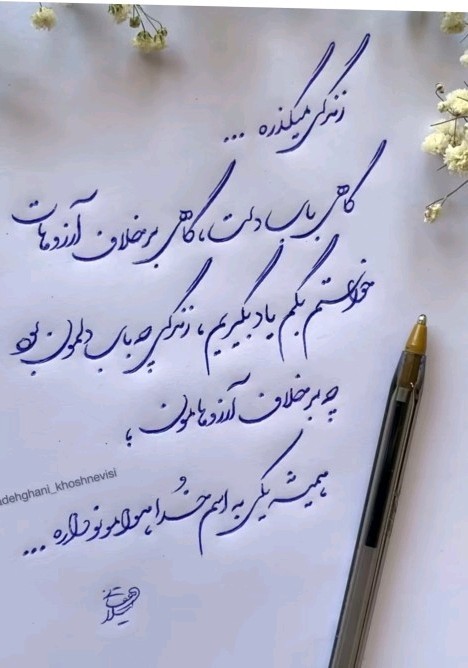 زندگی میگذره ...
گاهی باب دلت، گاهی برخلاف آرزوهات
خواستم بگم یاد بگیریم، زندگی چه باب دلمون بود
چه برخلاف آرزوهامون ؛
همیشه یکی به اسم خُدا هوامونو داره ...
adehghani_khoshnevisi